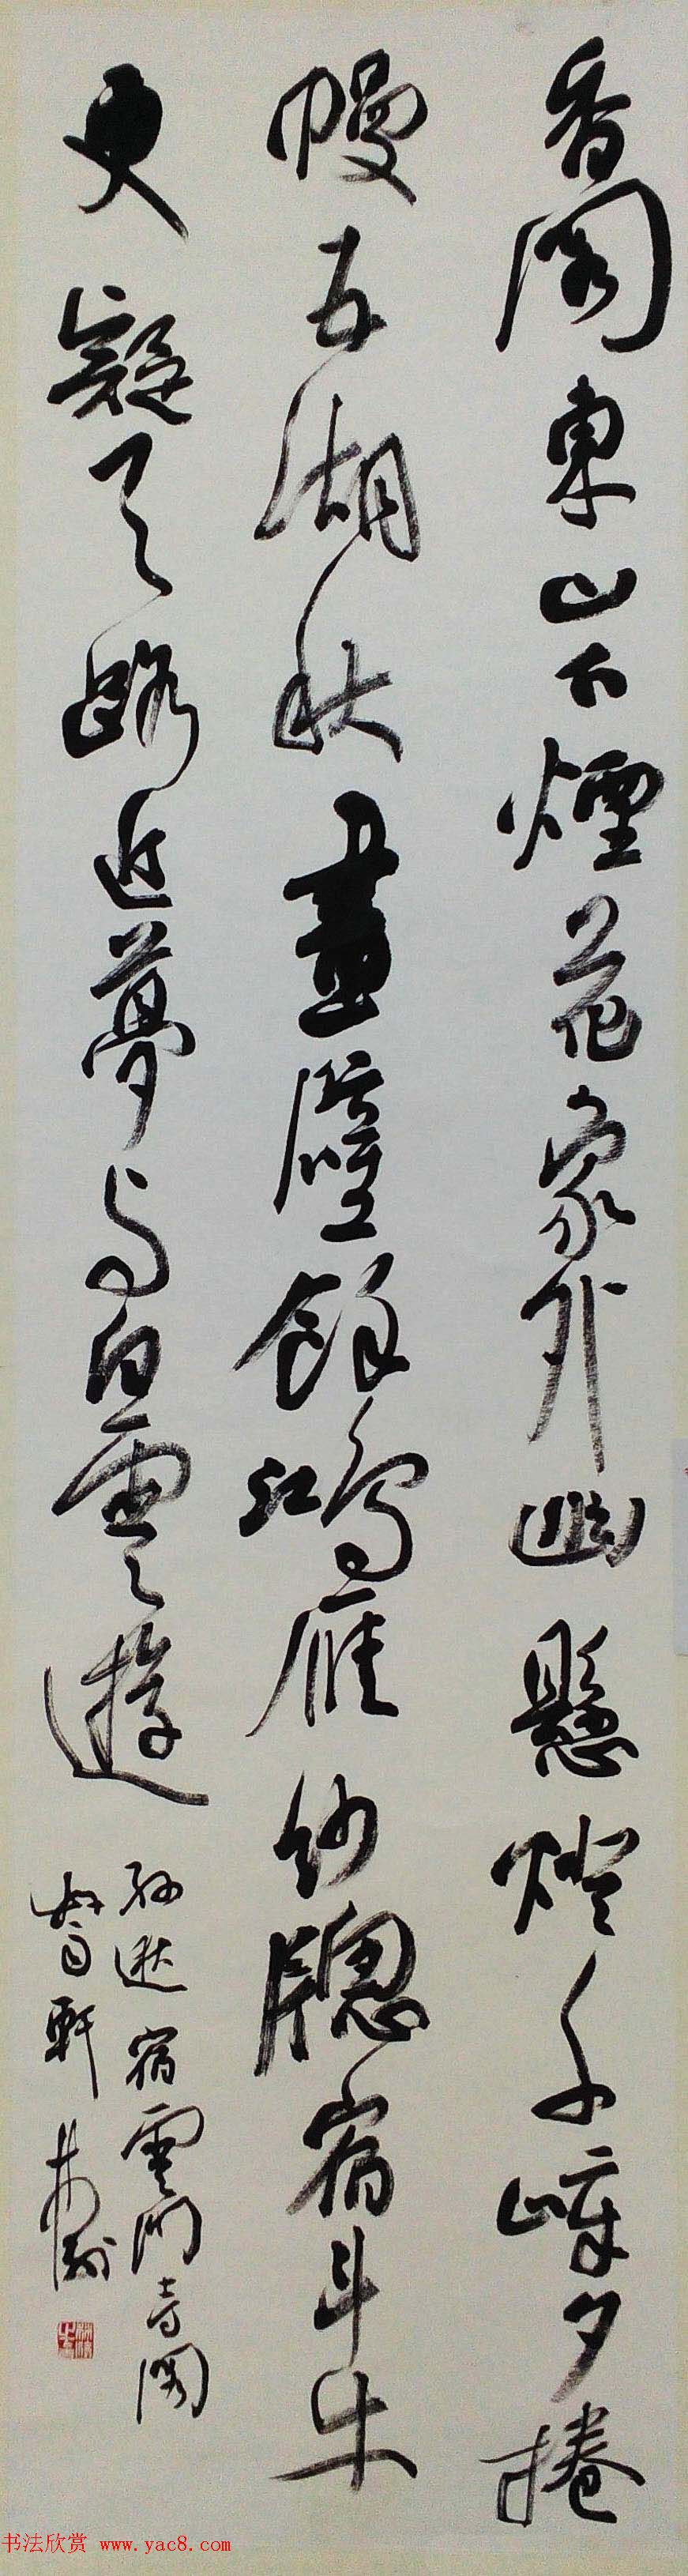 香閣東山下煙花象外幽懸燈千嶂夕捲
幔五湖秋畫壁餘鴻雁紗牕宿斗牛
更疑天路近夢與白雲遊
孫逖宿雲門寺閣
書法欣赏 www.yac8.com